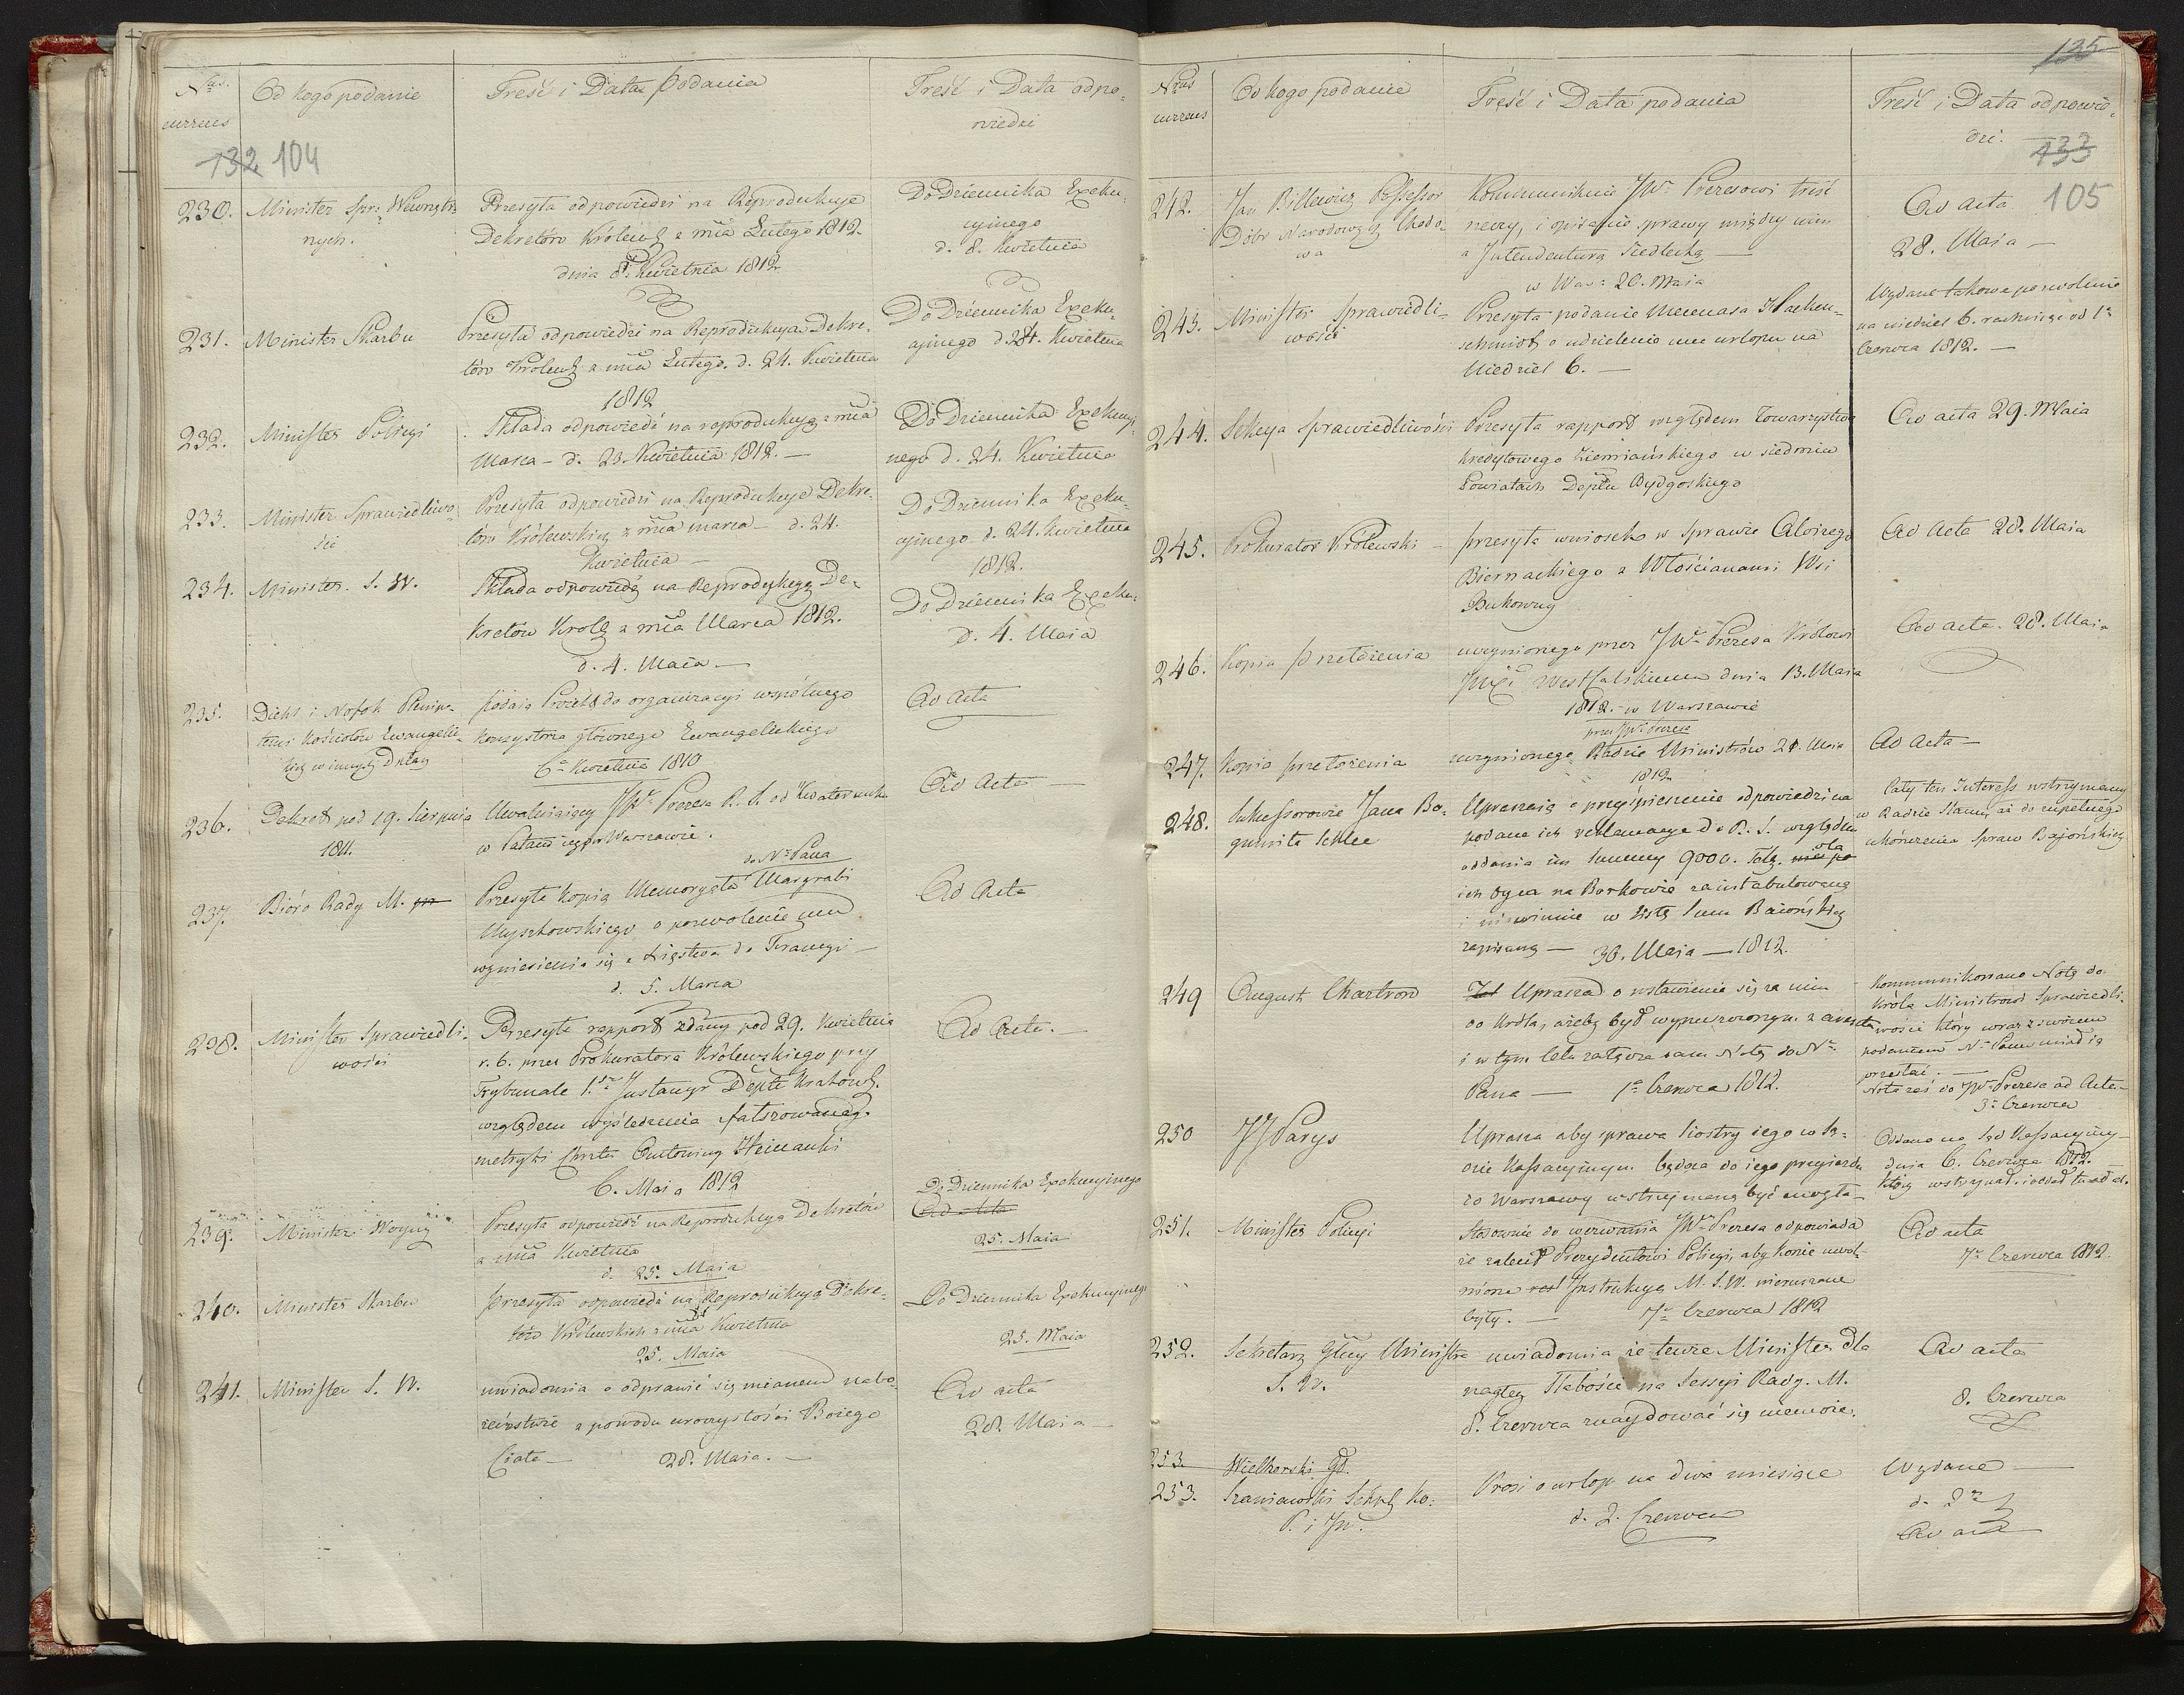 Nrus currens
Od kogo podanie
Treść i Data podania
Treść i Data odpo-
wiedzi
132 104
230. Minister Spr: Wewnętrz
nych.
Przesyła odpowiedzi na Reprodukcye
Dekretów Królewch z mca Lutego 1812.
dnia 8. Kwietnia 1812
Do Dziennika Exeku-
cyjnego
d. 8. Kwietnia
231. Minister Skarbu
Przesyła odpowiedzi na Reprodukcya Dekre-
tów Królewch z mca Lutego. d. 24. Kwietnia
1812
Do Dziennika Exeku-
cyjnego d 24. Kwietnia
232. Minister Policyi
Składa odpowiedź na reprodukcyą z mca
Marca – d. 23. Kwietnia 1812. –
Do Dziennika Exekucyj-
nego d. 24. Kwietnia
233. Minister Sprawiedliwo-
ści
Przesyła odpowiedzi na Reprodukcye Dekre-
tów Królewskich z mca marca – d. 24.
Kwietnia –
Do Dziennika Exeku-
cyjnego d. 24. Kwietnia
1812.
234. Minister S. W.
Składa odpowiedź na Reprodukcyą De-
kretów Król z mca Marca 1812.
d. 4. Maia –
Do Dziennika Exeku-
d. 4. Maia
235. Diehl i Nosok Plenipo-
tenci Kościołów Ewangelic-
kich w innych Dptach
podaią Proiekt do organizacyi wspólnego
Konsystorza głównego Ewangelickiego
6. Kwietnia 1810
Ad Acta
236. Dekret pod 19. Sierpnia
1811.
Uwalniaiący JWo Prezesa R. S. od Kwaterunku
w Pałacu iego w Warszawie.
Ad Acta –
237. Bióro Rady M. pr
do No Pana
Przesyła kopią Memoryału Margrabi
Myszkowskiego o pozwolenie mu
wyniesienia się z Xięstwa do Francyi –
d. 5. Marca
Ad Acta
238. Minister Sprawiedli-
wości
Przesyła rapport zdany pod 29. Kwietnia
r. b. przez Prokuratora Królewskiego przy
Trybunale 1. Instancyi Deptu Krakows.
względem wyśledzenia fałszowanego
metryki Chrztu Antoniny
6. Maia 1812
Ad Acta. –
239. Minister Woyny
Przesyła odpowiedź na Reprodukcyą Dekretów
z mca Kwietnia
d. 25. Maia
Do Dziennika Exekucyjnego
Ad Acta
25. Maia
240. Minister Skarbu
przesyła odpowiedź na Reprodukcyą Dekre-
tów Królewskich z mca Kwietnia
25. Maia
Do Dziennika Exekucyjnego
25. Maia
241. Minister S. W.
uwiadomia o odprawić się mianem nabo-
żeństwie z powodu uroczystości Bożego
Ciała – 28. Maia. –
Ad acta
28. Maia –
135
Nrus currens
Od kogo podanie
Treść i Data podania
Treść i Data odpowie-
dzi.
133
105
242. Jan Billewicz Possessor
Dóbr Narodowych
Kommunikuie JWo Prezesowi treść
rzeczy, i opisanie sprawy między nim
a Intendenturą Siedlecką –
w War: 20. Maia
Ad acta
28. Maia –
243. Minister Sprawiedli-
wości
Przesyła podanie Mecenasa
o udzielenie mu urlopu na
Niedziel 6. –
Wydane takowe pozwolenie
na niedziel 6. rachuiąc od 1o
Czerwca 1812. –
244. Sekcya sprawiedliwości
Przesyła rapport względem Towarzystwa
kredytowego Ziemiańskiego w siedmiu
Powiatach Deptu Bydgoskiego
Ad acta 29. Maia
245. Prokurator Królewski –
przesyła wniosek w Sprawie Aloizego
Biernackiego z Włościanami Wsi
Bukownicy
Ad Acta 28. Maia
246. Kopia przełożenia
uczynionego przez JWo Prezesa Królowi
JMci Westfalskiemu dnia 13. Maia
1812. – w Warszawie
Ad acta. 28. Maia
247. Kopia przełożenia
przez JWo Prezesa
uczynionego Radzie Ministrów 21. Maia
1812
Ad Acta –
248. Sukcessorowie Jana Bo-
gumiła Schlee
Upraszaią o przyśpieszenie odpowiedzi na
podane ich reklamacye do R. S. względem
oddania im Summy 9000. Tal. nie po
dla
ich oyca na Borkowie zaintabulowaną
i niewinnie w listę Summ Baiońskich
zapisaną – 30. Maia – 1812.
Cały ten Interess wstrzymany
w Radzie Stanu, aż do zupełnego
ukończenia Spraw Bajońskich
249 August Chartron
Upraszał o wstawienie się za nim
do Króla, ażeby był wypuszczonym z aresztu
i w tym celu załącza sam Notę do No
Pana – 1o Czerwca 1812.
Kommunikowane Notę do
Króla Ministrowi Sprawiedli-
wości który wraz z swoiem
podaniem No Panu miał ią
przesłać. –
Nota zaś do JWo Prezesa ad Acta –
3. Czerwca
250 JJ Parys
Uprasza aby sprawa siostry iego w Są-
dzie Kassacyinym będąca do iego przyiazdu
do Warszawy wstrzymaną być mogła –
Oddano na Sąd Kassacyiny –
dnia 6. Czerwca 1812. –
251. Minister Policyi
Stosownie do wezwania JWo Prezesa odpowiada
że zalecił Prezydentowi Policyi, aby konie uwol-
nione Instrukcyą M. S. W. nieruszane
były. – 7o Czerwca 1812
Ad acta
7o Czerwca 1812.
252. Sekretarz Głny Ministra
S. W.
uwiadomia że tenże Minister dla
nagłey słabości na Sessyi Rady. M.
8. Czerwca znaydować się niemoże.
Ad acta
8. Czerwca
253. Wielhorski Gł.
253. Szaniawski Sekr. Ko:
P. i JW.
Prosi o urlop na dwa miesiące
d. 2. Czerwca
Wydane –
d. 2
Ad acta